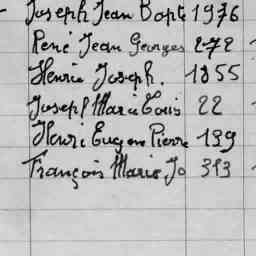 Joseph Jean Bapt 1976
René Jean Georges 272
Henri Joseph. 1855
Joseph Marie Louis 22
Henri Eugene Pierre 199
François Marie Jo 313